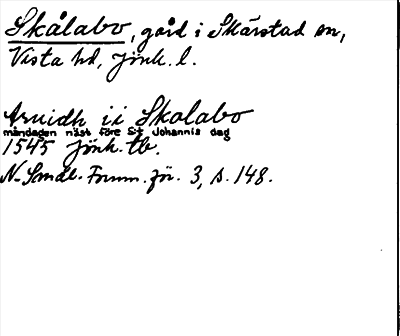 Skålabo, gård i Skärstad sn,
Vista hd, Jönk. l.
Aruidh ii Skalabo
måndagen näst före S:t Johannis dag
1545 Jönk. tb.
N. Smål. Fornm. för. 3, s. 148.